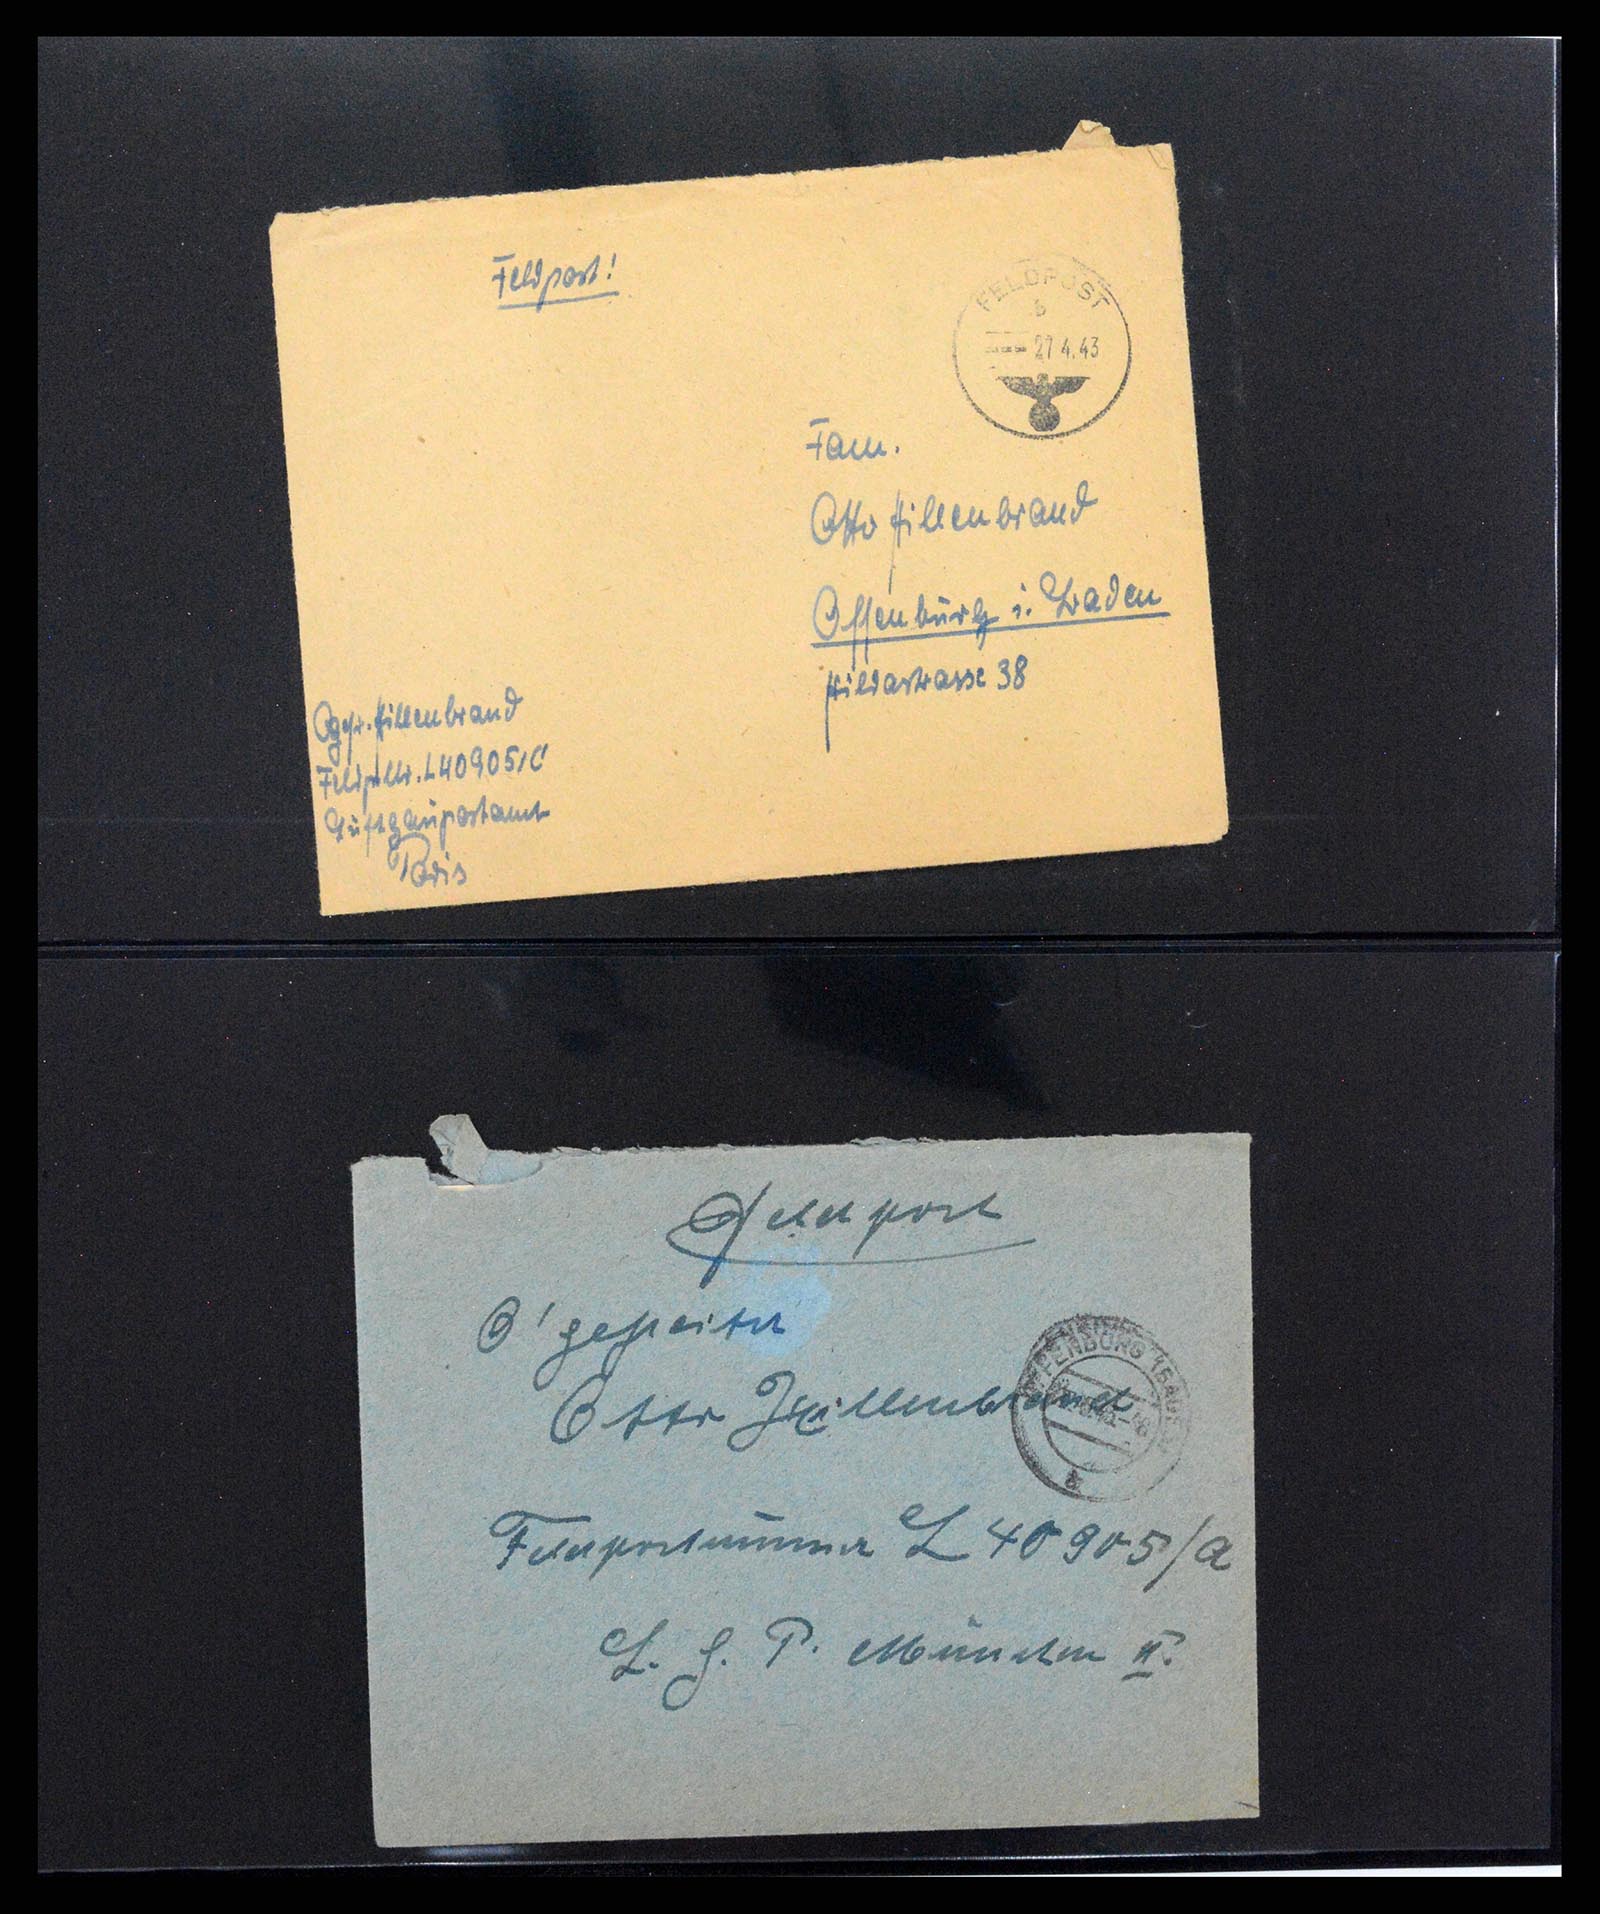 Feldpost!
FELDPOST
b
27.4.43
Fam.
Otto Hillenbrand
Offenburg i. Baden
Hildastrasse 38
Ogefr. Hillenbrand
Feldp.Nr. L40905/C
Luftgaupostamt
Paris
Feldpost
O'gefreiter
Otto Hillenbrand
OFFENBURG (BADEN)
a
Feldpostnummer L 40905/a
L. G. P. München II.